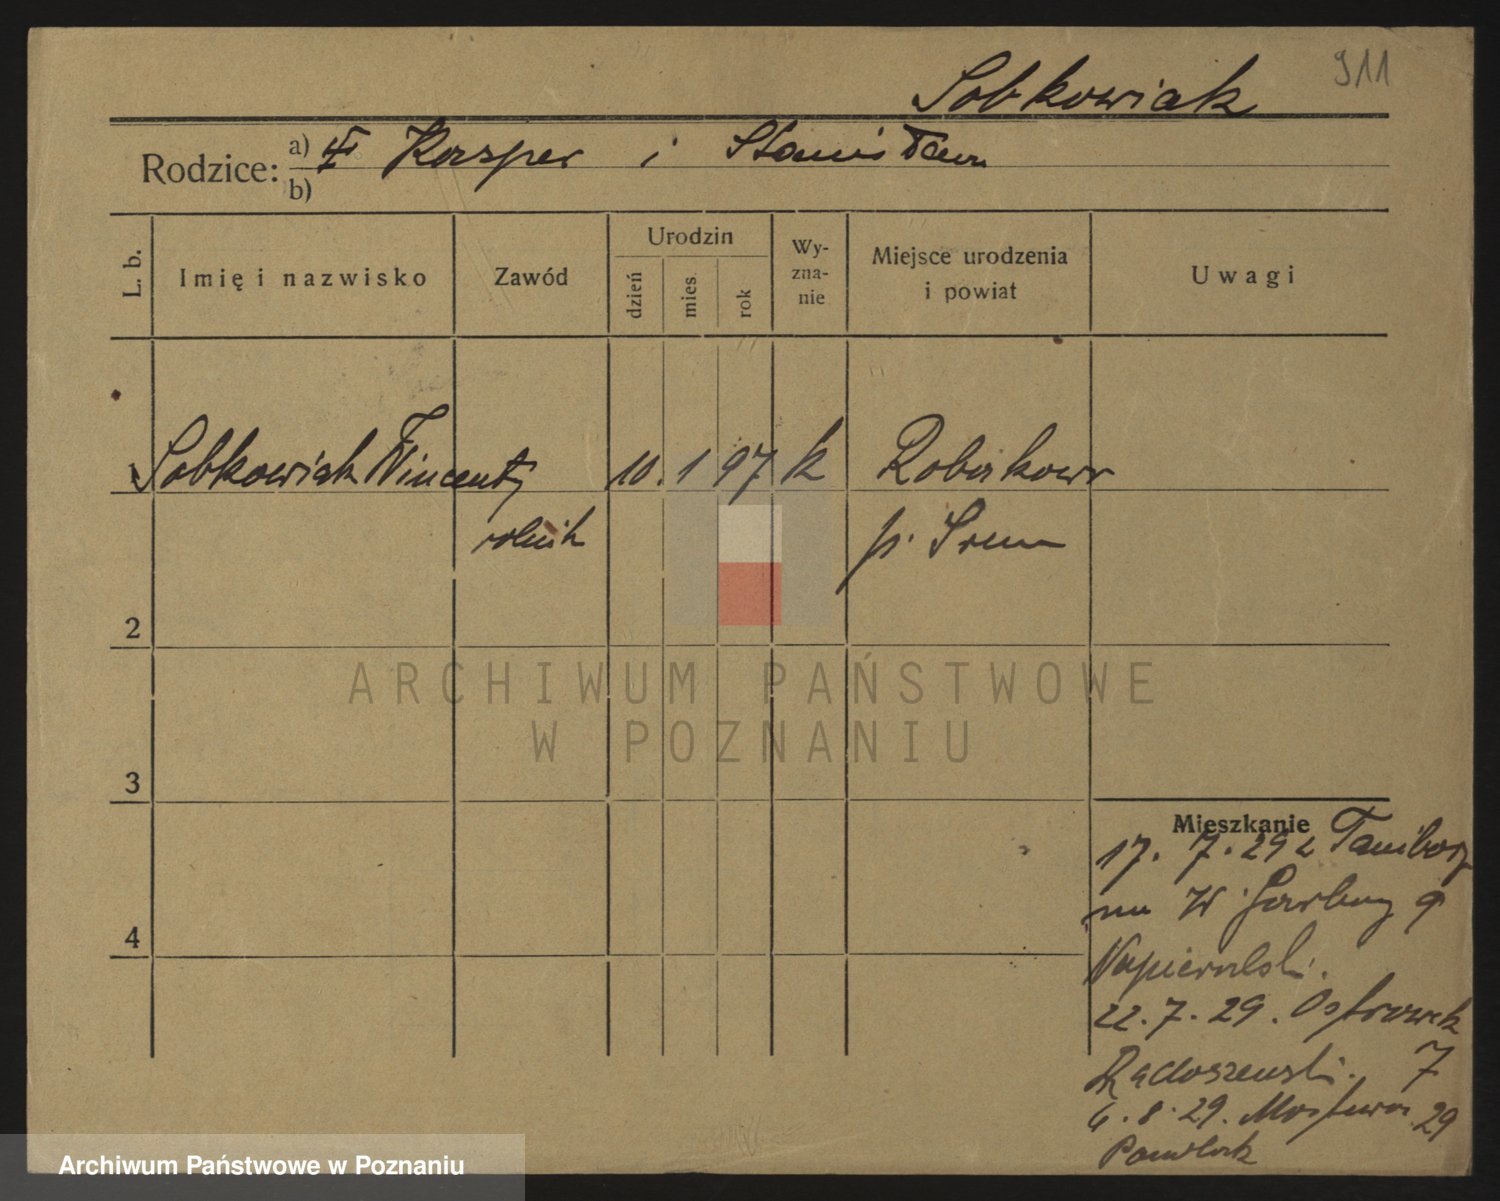 911
Sobkowiak
Rodzice: a) Kasper i Stanisława
b)
L. b.
Imię i nazwisko
Zawód
Urodzin
dzień
mies
rok
Wy-
zna-
nie
Miejsce urodzenia
i powiat
Uwagi
1 Sobkowiak Wincenty 10. 1 97 k
rolnik p. Srem
2
3
4
ARCHIWUM PAŃSTWOWE
W POZNANIU
Mieszkanie
17. 7. 29 z
na W Garbary 9
Napieralski.
22. 7. 29. Ostrówek
Radoszewski. 7
6. 8. 29. Mostowa 29
Archiwum Państwowe w Poznaniu